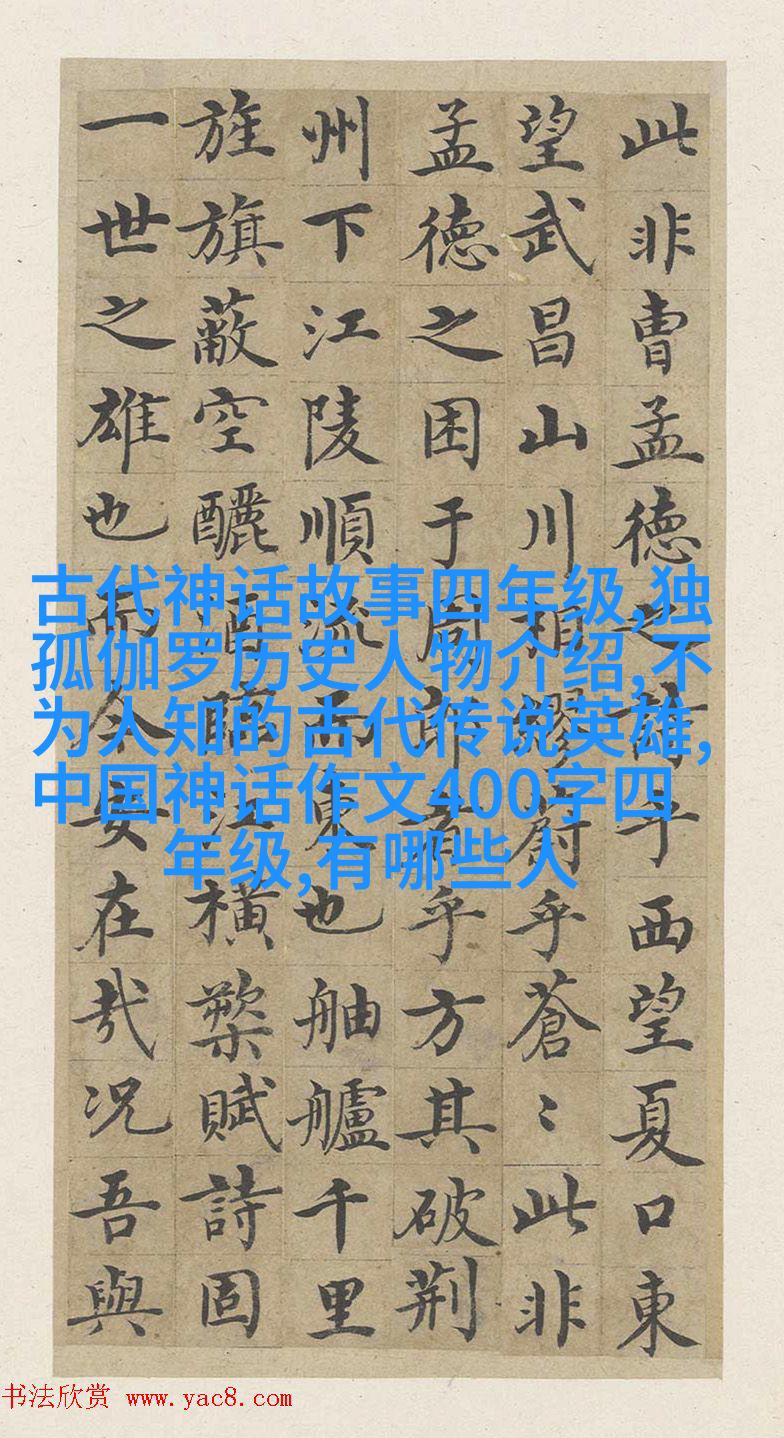 此非曹孟德之詩乎西望夏口東
望武昌山川相繆蔚乎蒼〻此非
孟德之困于周郎者乎方其破荆
州下江陵順流而東也舳艫千里
旌旗蔽空釃酒臨江橫槊賦詩固
一世之雄也而今安在哉況吾與
古代神话故事四年级,独
孤伽罗历史人物介绍,不
为人知的古代传说英雄,
中国神话作文400字四
年级,有哪些人
书法欣赏 www.yac8.com